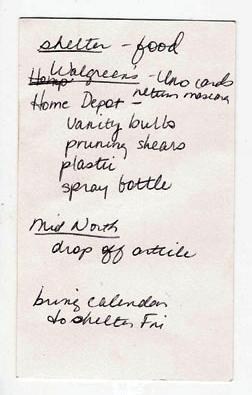 shelter - food
Home Walgreens - Uno cards
return mascara
Home Depot -
vanity bulbs
pruning shears
plastic
spray bottle
Mid North
drop off article
bring calendar
to shelter Fri